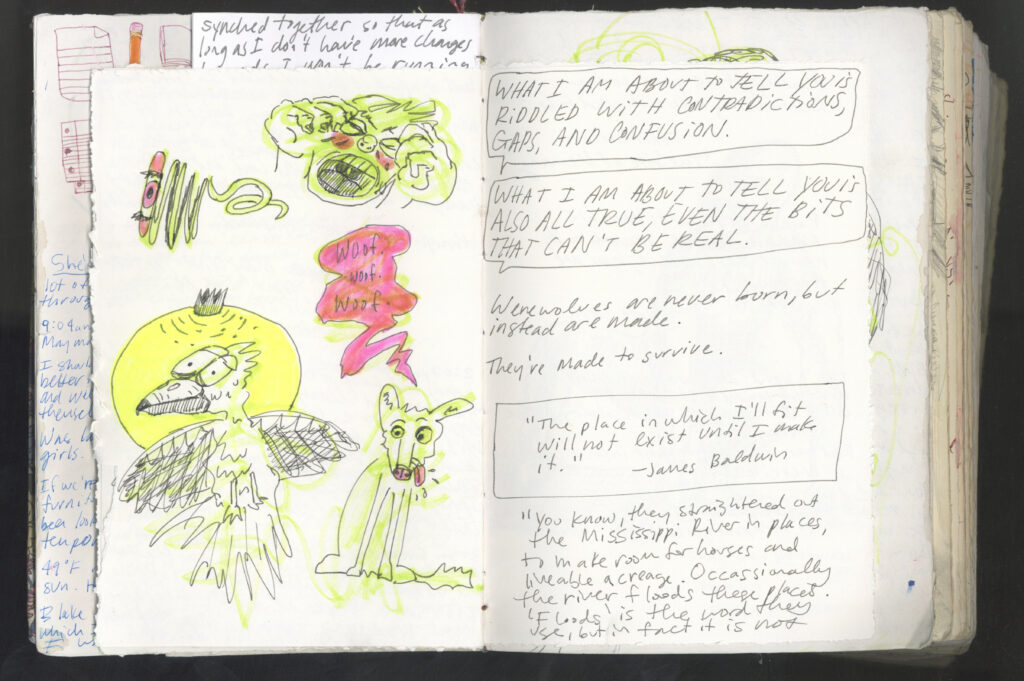 synched together so that as
long as I don't have more changes
I won't be running
lot of
9:04am
May
I
better
and
Was
girls.
been
49°F
sun.
I like
which
I
Woof.
woof.
Woof.
WHAT I AM ABOUT TO TELL YOU IS
RIDDLED WITH CONTRADICTIONS,
GAPS, AND CONFUSION.
WHAT I AM ABOUT TO TELL YOU IS
ALSO ALL TRUE, EVEN THE BITS
THAT CAN'T BE REAL.
Werewolves are never born, but
instead are made.
They're made to survive.
"The place in which I'll fit
will not exist until I make
it."
—James Baldwin
"You know, they straightened out
the Mississippi River in places,
to make room for houses and
liveable acreage. Occassionally
the river floods these places.
'Floods' is the word they
use, but in fact it is not